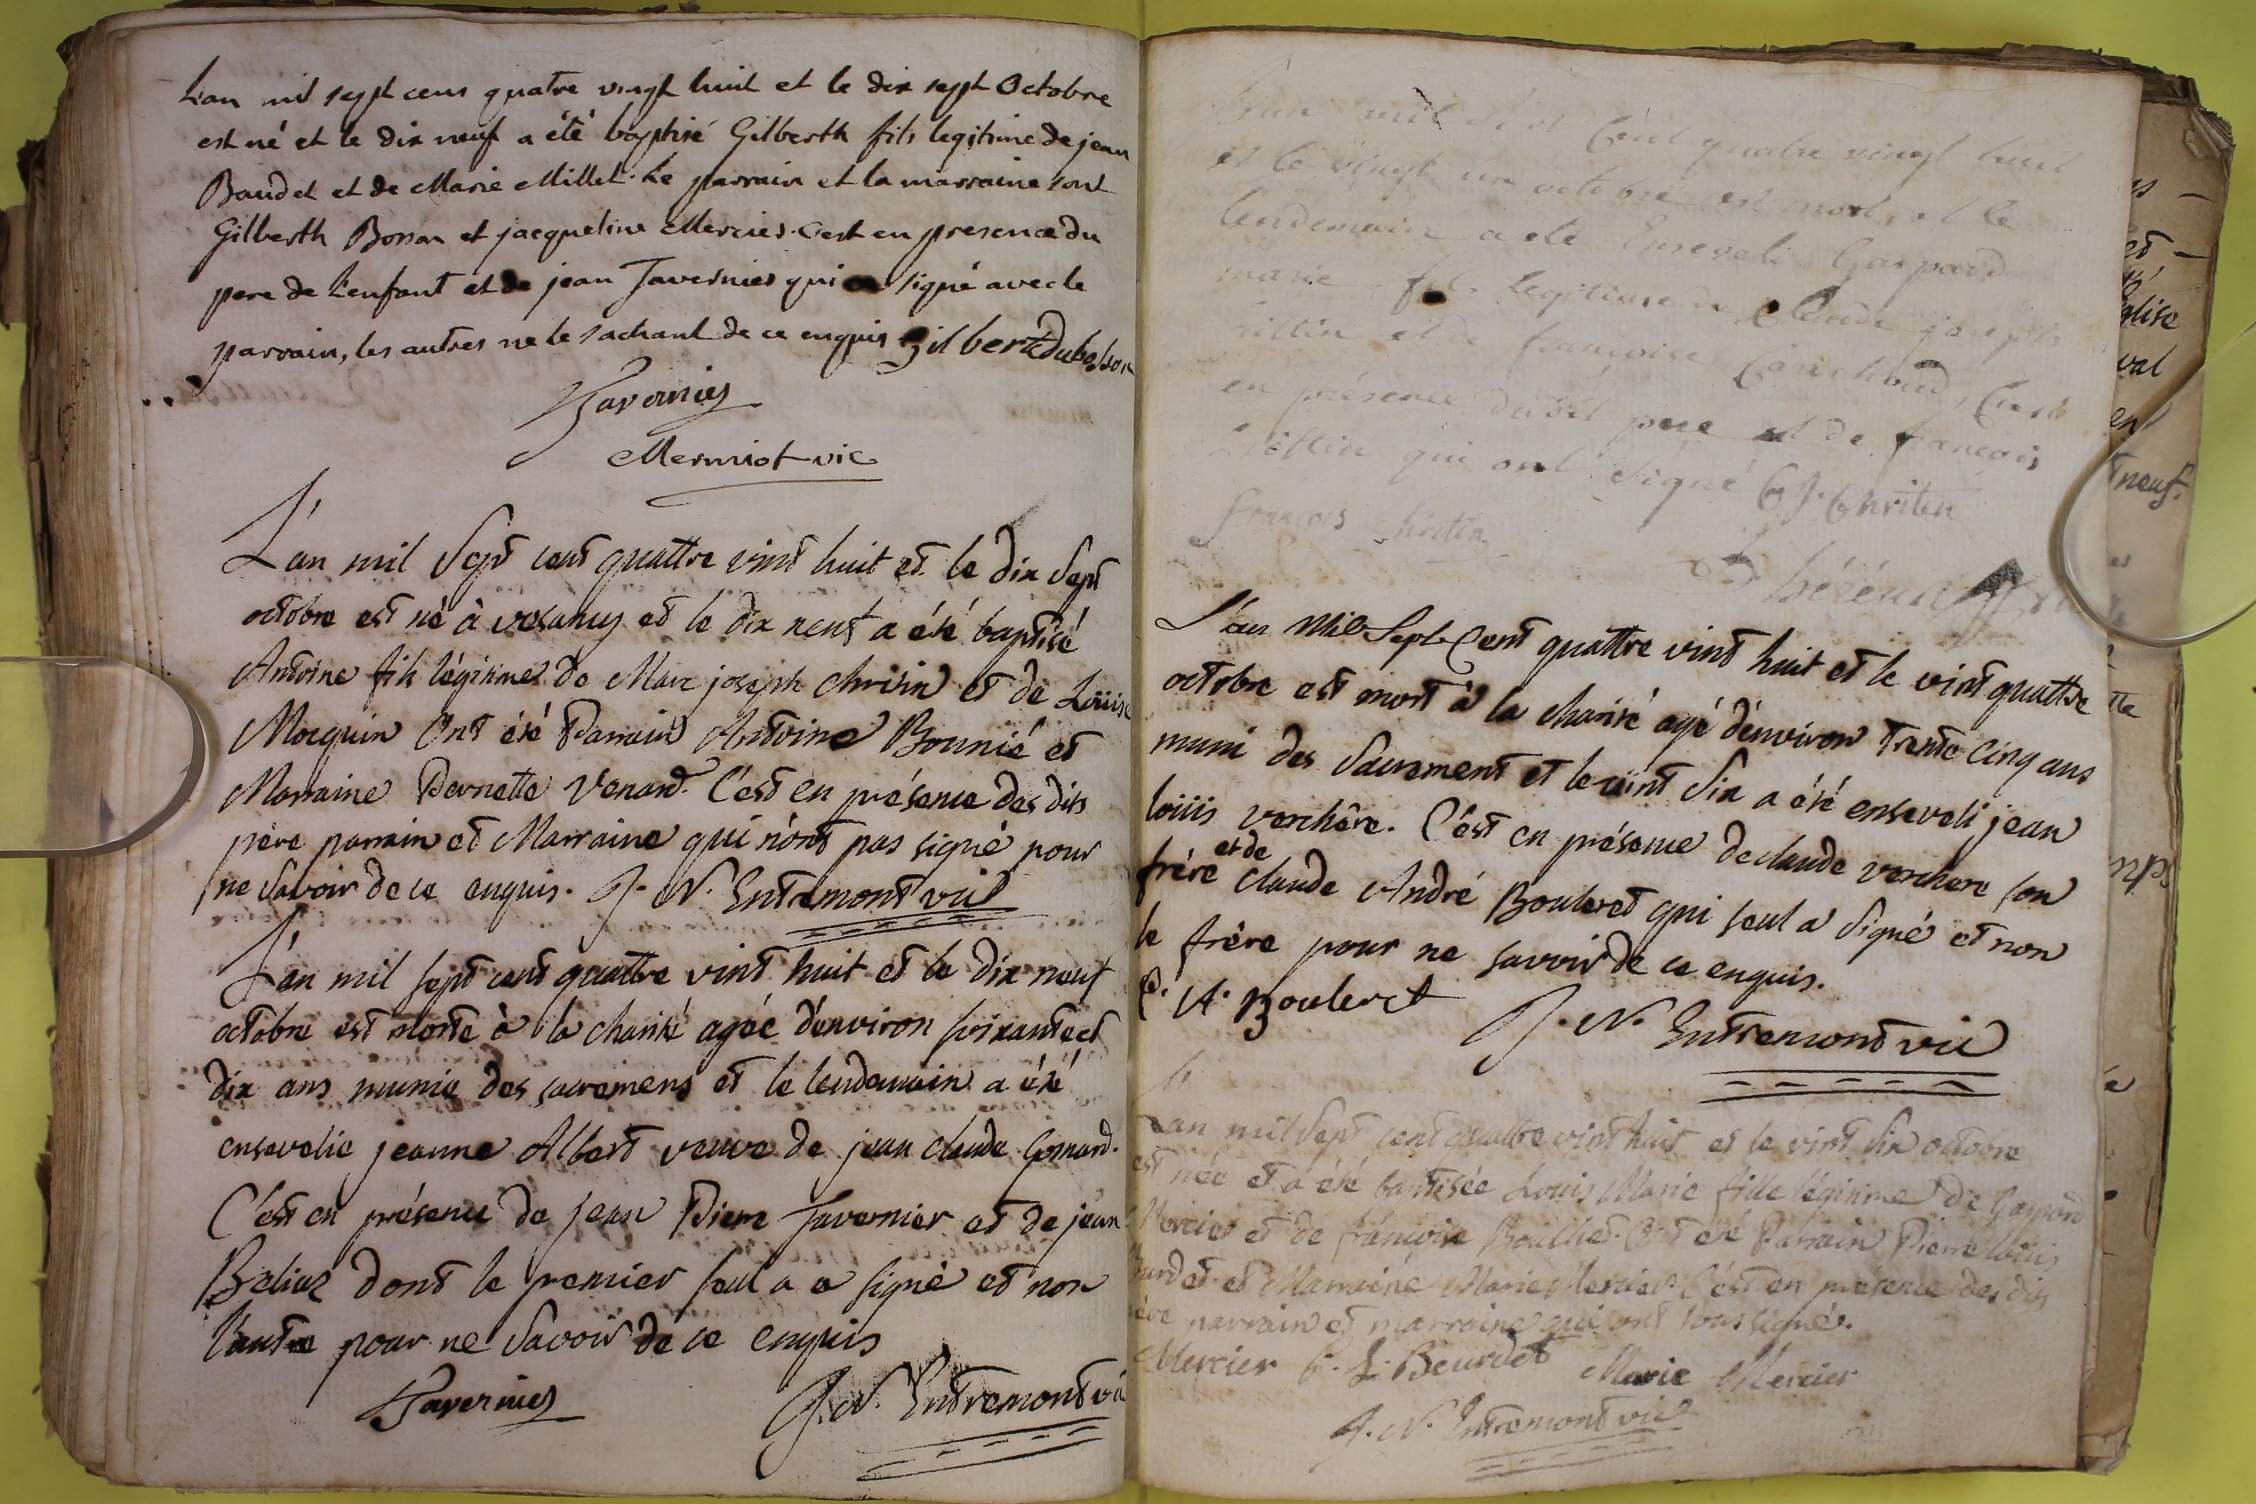 L'an mil sept cens quatre vingt huit et le dix sept Octobre
est né et le dix neuf a été baptisé Gilberth fils legitime de jean
Baudet et de Marie Millet. Le parrain et la marraine sont
Gilberth Bosson et jacqueline Mercier. C'est en presence du
pere de l'enfant et de jean Tavernier qui a signé avec le
parrain, les autres ne le sachant de ce enquis gilbert dubosson
Tavernier
Mermiot vic
L'an mil Sept cent quattre vint huit et le dix Sept
octobre est né à vesancy et le dix neuf a été baptisé
Antoine fils légitime de Marc joseph chrisin et de Loüise
Mocquin Ont été Parrain Antoine Bounié et
Marraine Pernette Venard. C'est en présence des dits
père parrain et Marraine qui n'ont pas signé pour
ne Savoir de ce enquis. J. N. Entremont vic
L'an mil sept cent quattre vint huit et le dix neuf
octobre est morte à la charité agée d'environ soixante et
dix ans munie des sacremens et le lendemain a été
ensevelie jeanne Albert veuve de jean claude Gonard.
C'est en présence de jean Pierre Tavernier et de jean
Beliaz dont le premier seul a a signé et non
l'autre pour ne Savoir de ce enquis
Tavernier J. N. Entremont vic
L'an mil Sept Cent quatre vingt huit
et le vingt un octobre est mort, et le
lendemain a été Enseveli Gaspard
marie fils legitime de Claude joseph
et de françoise C'est
en présence dudit pere et de françois
qui ont Signé C J. Chriten
françois
L'an Mil Sept Cent quattre vint huit et le vint quattre
octobre est mort à la charité agé d'environ trente cinq ans
muni des Sacrement et le vint Six a été enseveli jean
loüis verchère. C'est en présence de claude verchere son
frére et de claude André Bouleret qui seul a Signé et non
le frère pour ne savoir de ce enquis.
C. A. Bouleret
J. N. Entremont vic
L'an mil Sept cent quattre vint huit et le vint Six octobre
est née et a été baptisée Louis Marie fille légitime de Gaspard
Mercier et de françoise Bouchet. Ont été Parrain Pierre Loüis
et Marraine Marie Mercier. C'est en présence des dits
père parrain et marraine qui ont tous signés.
Mercier P. L. Beurdet Marie Mercier
J. N. Entremont vic